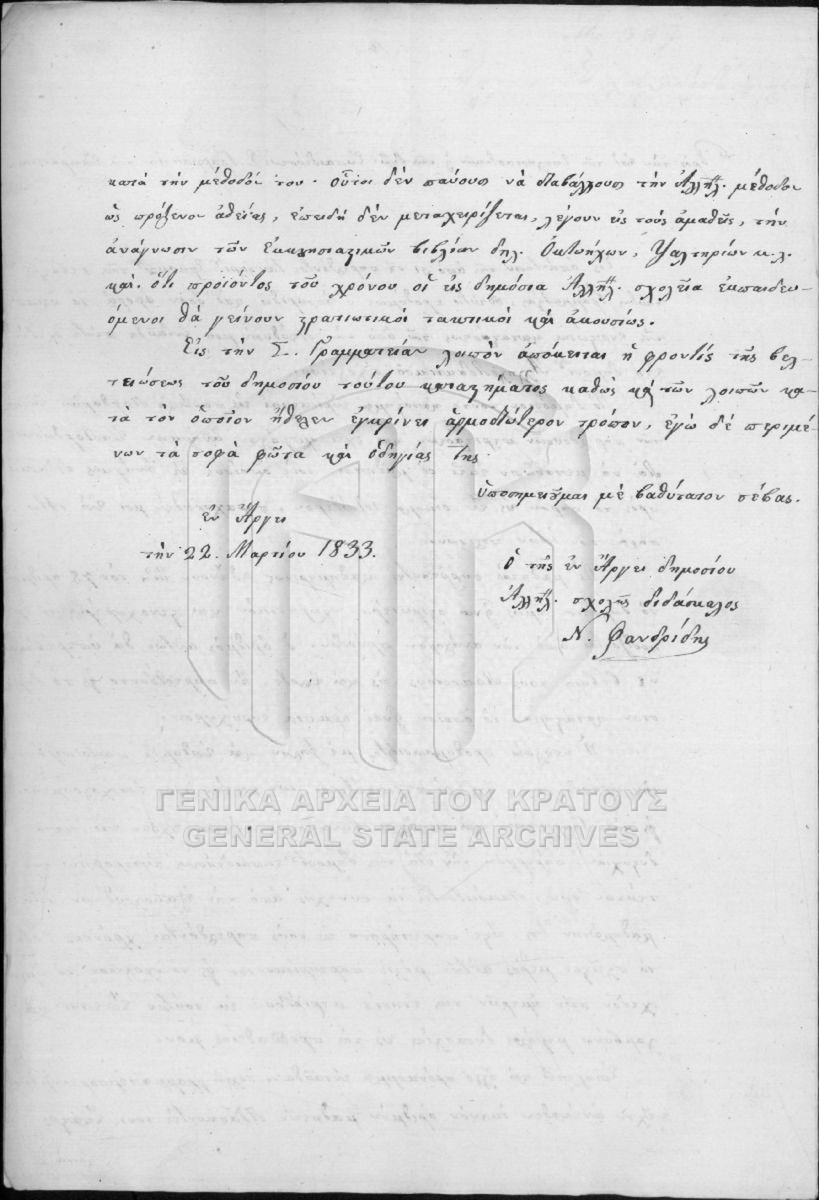 κατὰ τὴν μέθοδόν του. Οὗτοι δὲν παύουσι νὰ διαβάλλουσι τὴν Ἀλληλ. μέθοδον
ὡς πρόξενον ἀθεΐας, ἐπειδὴ δὲν μεταχειρίζεται, λέγουν εἰς τοὺς ἀμαθεῖς, τὴν
ἀνάγνωσιν τῶν Ἐκκλησιαστικῶν βιβλίων δηλ. Ὀκτωήχων, Ψαλτηρίων κ.λ.
καὶ ὅτι προϊόντος τοῦ χρόνου οἱ εἰς δημόσια Ἀλληλ. σχολεῖα ἐκπαιδευ-
όμενοι θὰ γείνουν στρατιωτικοὶ τακτικοὶ καὶ ἀκουσίως.
Εἰς τὴν Σ. Γραμματείαν λοιπὸν ἀπόκειται ἡ φροντὶς τῆς βελ-
τειώσεως τοῦ δημοσίου τούτου καταστήματος καθὼς καὶ τῶν λοιπῶν κα-
τὰ τὸν ὁποῖον ἤθελεν ἐγκρίνει ἁρμοδιώτερον τρόπον, ἐγὼ δὲ περιμέ-
νων τὰ σοφὰ φῶτα καὶ ὁδηγίας της
ὑποσημειοῦμαι μὲ βαθύτατον σέβας.
ἐν Ἄργει
τὴν 22. Μαρτίου 1833.
Ὁ τῆς ἐν Ἄργει δημοσίου
Ἀλληλ. σχολῆς διδάσκαλος
Ν. Φανδρίδης
ΓΕΝΙΚΑ ΑΡΧΕΙΑ ΤΟΥ ΚΡΑΤΟΥΣ
GENERAL STATE ARCHIVES